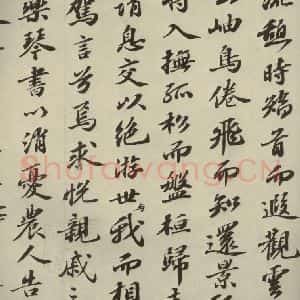 流憩時矯首而遐觀雲
岫鳥倦飛而知還景
將入撫孤松而盤桓歸
請息交以絕游世与我而相
駕言兮焉求悅親戚之
樂琴書以消憂農人告
Shufawang.CN